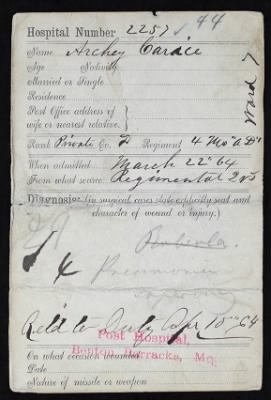 Hospital Number 2257 / 44
Name, Archey Carice
Age Nativity
Married or Single
Residence
Post Office address of
wife or nearest relative.
Ward 7
Rank Private Co. Regiment 4 Mo A D
When admitted, March 22" 64
From what source, Regimental
Diagnosis: (in surgical cases state explicitly seat and
character of wound or injury.)
Rubeola
4 Pneumonia
Ret'd to duty Apr 10" 64
Post Hospital,
Benton Barracks, Mo.
On what occasion wounded
Date
Nature of missile or weapon